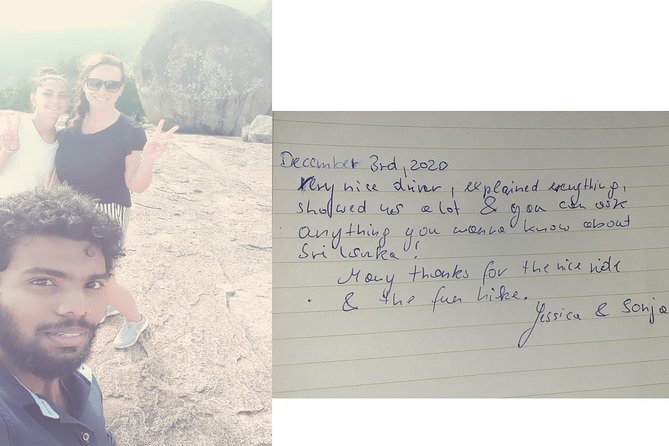 December 3rd, 2020
Very nice driver, explained everything,
showed us a lot & you can ask
anything you wanna know about
Sri Lanka!
Many thanks for the nice ride
& the fun hike.
Jessica & Sonja